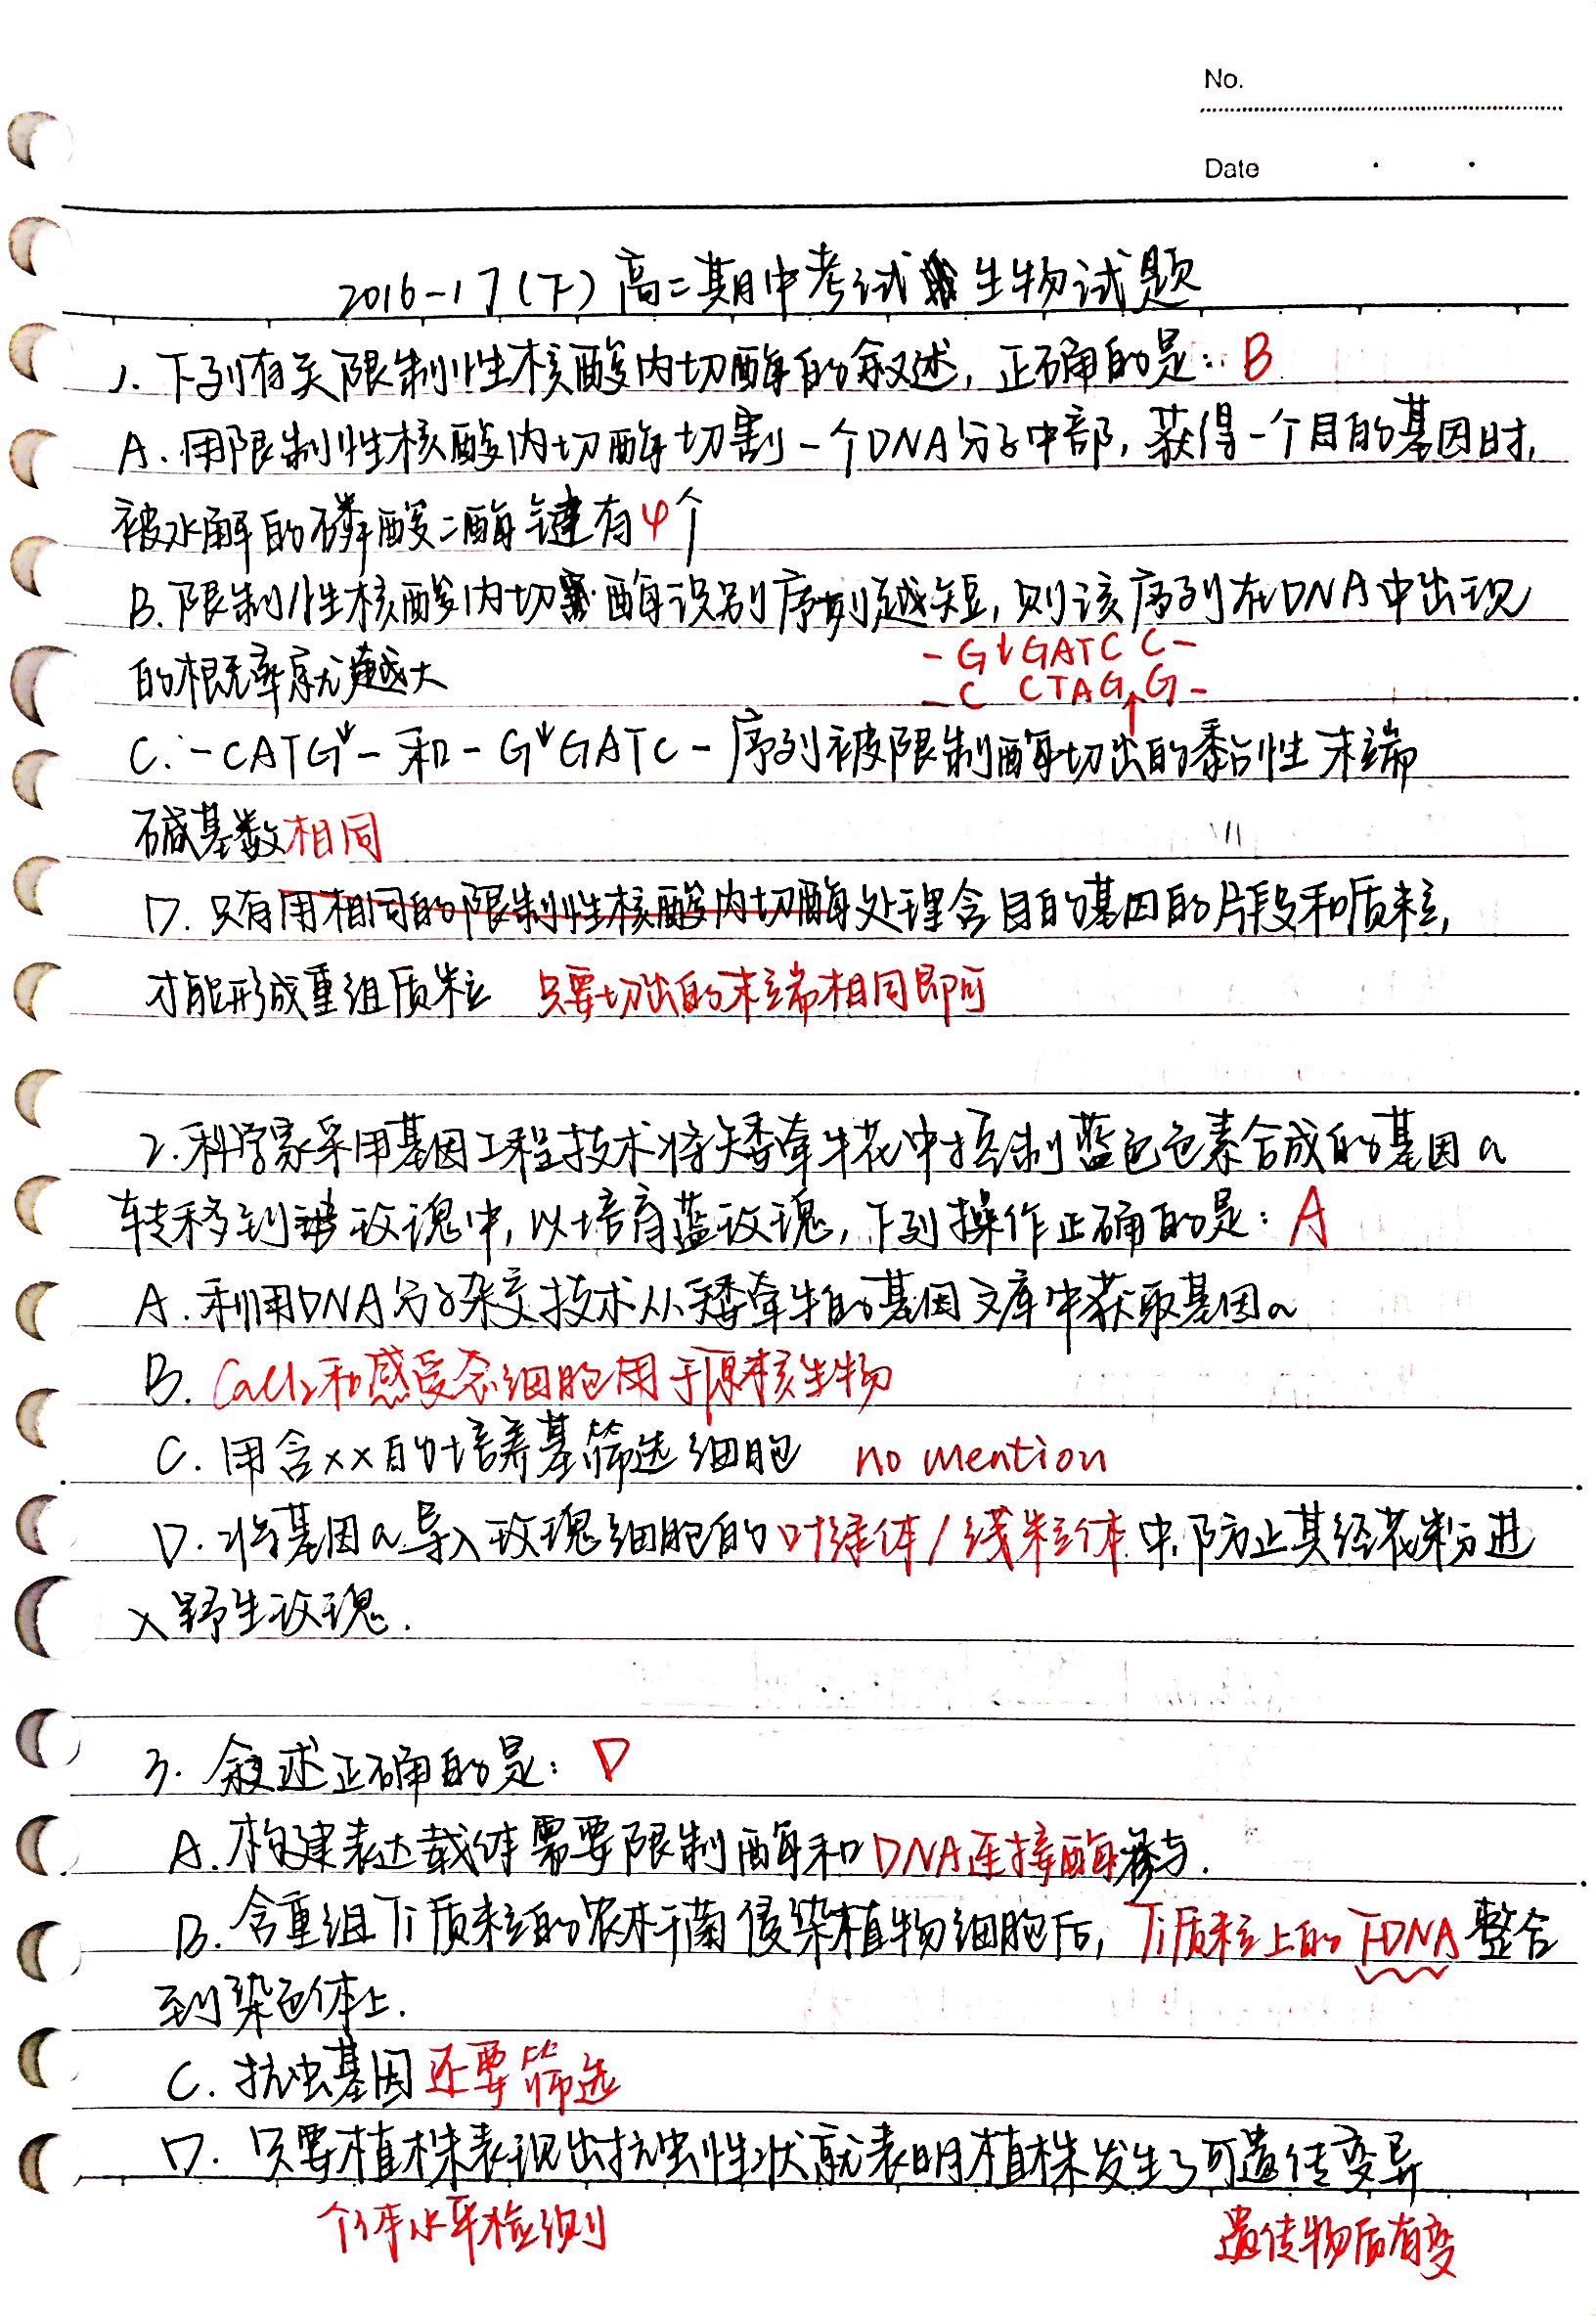 No.
Date
2016-17(下)高二期中考试生物试题
1. 下列有关限制性核酸内切酶的叙述，正确的是：B
A. 用限制性核酸内切酶切割一个DNA分子中部，获得一个目的基因时，
被水解的磷酸二酯键有4个
B. 限制性核酸内切酶识别序列越短，则该序列在DNA中出现
的概率就越大
-G↓GATC C-
-C CTAG↑G-
C. -CATG↓-和-G↓GATC-序列被限制酶切出的黏性末端
碱基数相同
D. 只有用相同的限制性核酸内切酶处理含目的基因的片段和质粒，
才能形成重组质粒 只要切出的末端相同即可
2. 科学家采用基因工程技术将矮牵牛花中控制蓝色色素合成的基因a
转移到玫瑰中，以培育蓝玫瑰，下列操作正确的是：A
A. 利用DNA分子杂交技术从矮牵牛的基因文库中获取基因a
B. CaCl₂和感受态细胞用于原核生物
C. 用含xx的培养基筛选细胞 no mention
D. 将基因a导入玫瑰细胞的叶绿体/线粒体中，防止其经花粉进
入野生玫瑰.
3. 叙述正确的是：D
A. 构建表达载体需要限制酶和DNA连接酶参与.
B. 含重组Ti质粒的农杆菌侵染植物细胞后，Ti质粒上的T-DNA整合
到染色体上.
C. 抗虫基因还要筛选
D. 只要植株表现出抗虫性状就表明植株发生了可遗传变异
个体水平检测 遗传物质有变